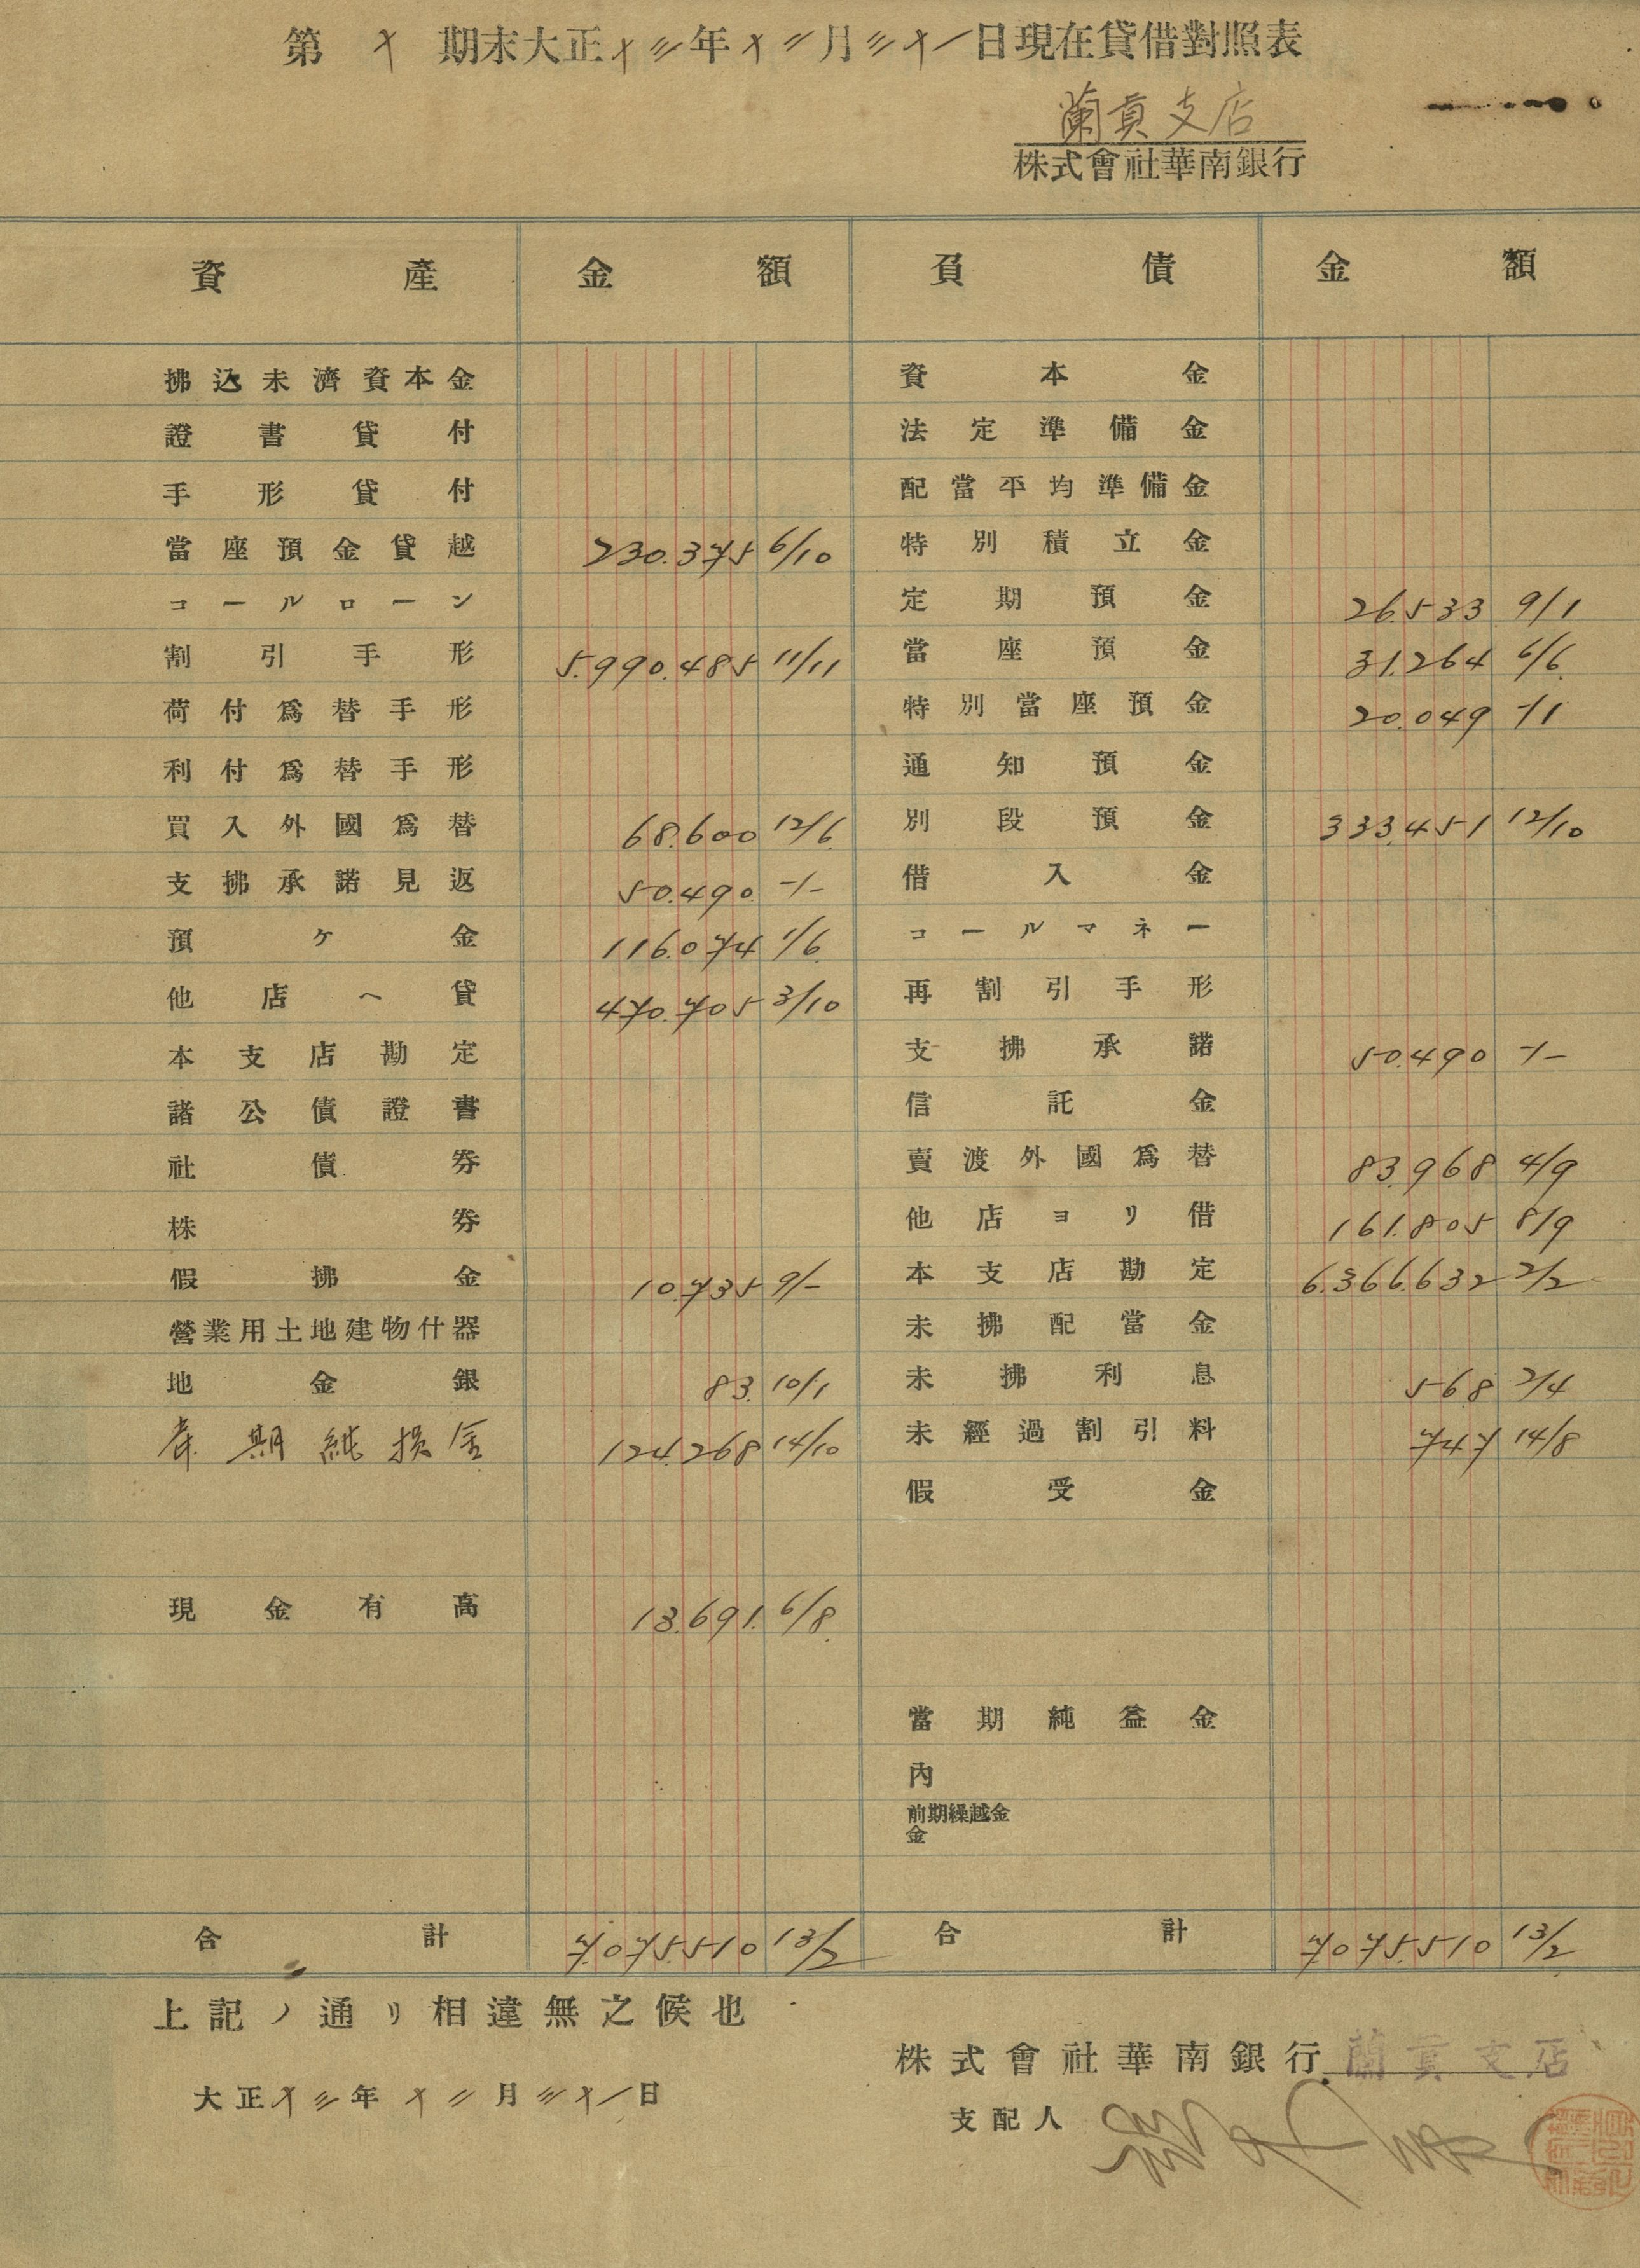 第 十 期末大正十三年十二月三十一日現在貸借對照表
蘭貢支店
株式會社華南銀行
資產 金額 負債 金額
拂込未濟資本金 資本金
證書貸付 法定準備金
手形貸付 配當平均準備金
當座預金貸越 230.375 6/10 特別積立金
コールローン 定期預金 26.533 9/1
割引手形 5.990.485 11/11 當座預金 31.264 6/6
荷付爲替手形 特別當座預金 20.049 -/1
利付爲替手形 通知預金
買入外國爲替 68.600 12/6 別段預金 333.451 12/10
支拂承諾見返 50.490 -/- 借入金
預ケ金 116.074 1/6 コールマネー
他店ヘ貸 470.705 3/10 再割引手形
本支店勘定 支拂承諾 50.490 -/-
諸公債證書 信託金
社債券 賣渡外國爲替 83.968 4/9
株券 他店ヨリ借 161.805 8/9
假拂金 10.735 9/- 本支店勘定 6.366.632 2/2
營業用土地建物什器 未拂配當金
地金銀 83. 10/1 未拂利息 568 2/4
本期純損金 124.268 14/10 未經過割引料 747 14/8
假受金
現金有高 13.691. 6/8
當期純益金
內
前期繰越金
金
合計 7.075.510 13/2 合計 7.075.510 13/2
上記ノ通リ相違無之候也
株式會社華南銀行 蘭貢支店
大正十三年十二月三十一日
支配人